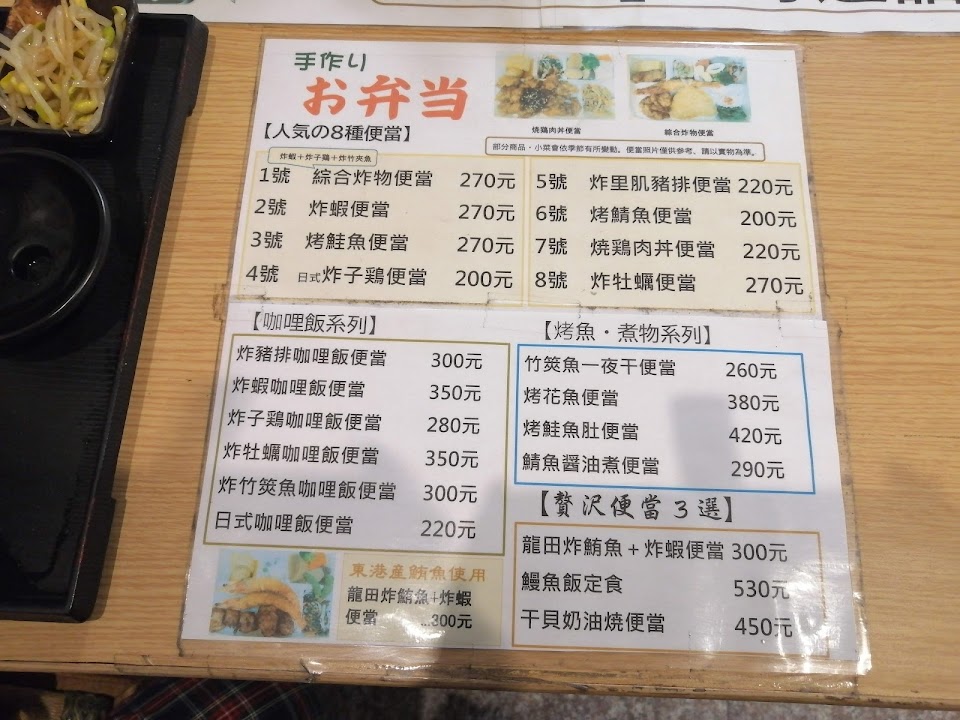 手作り
お弁当
燒鶏肉丼便當
綜合炸物便當
【人気の8種便當】
部分商品,小菜會依季節有所變動。便當照片僅供參考、請以實物為準。
炸蝦+炸子鶏+炸竹夾魚
1號 綜合炸物便當 270元
2號 炸蝦便當 270元
3號 烤鮭魚便當 270元
4號 日式炸子鶏便當 200元
5號 炸里肌豬排便當 220元
6號 烤鯖魚便當 200元
7號 燒鶏肉丼便當 220元
8號 炸牡蠣便當 270元
【咖哩飯系列】
炸豬排咖哩飯便當 300元
炸蝦咖哩飯便當 350元
炸子鶏咖哩飯便當 280元
炸牡蠣咖哩飯便當 350元
炸竹筴魚咖哩飯便當 300元
日式咖哩飯便當 220元
【烤魚・煮物系列】
竹筴魚一夜干便當 260元
烤花魚便當 380元
烤鮭魚肚便當 420元
鯖魚醬油煮便當 290元
【贅沢便當3選】
龍田炸鮪魚+炸蝦便當 300元
鰻魚飯定食 530元
干貝奶油燒便當 450元
東港産鮪魚使用
龍田炸鮪魚+炸蝦
便當 ...300元